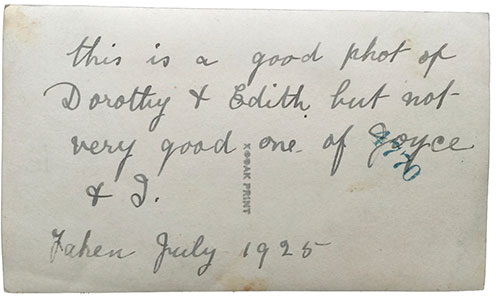 this is a good phot of
Dorothy & Edith but not
very good one of Joyce
& I.
Taken July 1925
KODAK PRINT
4770